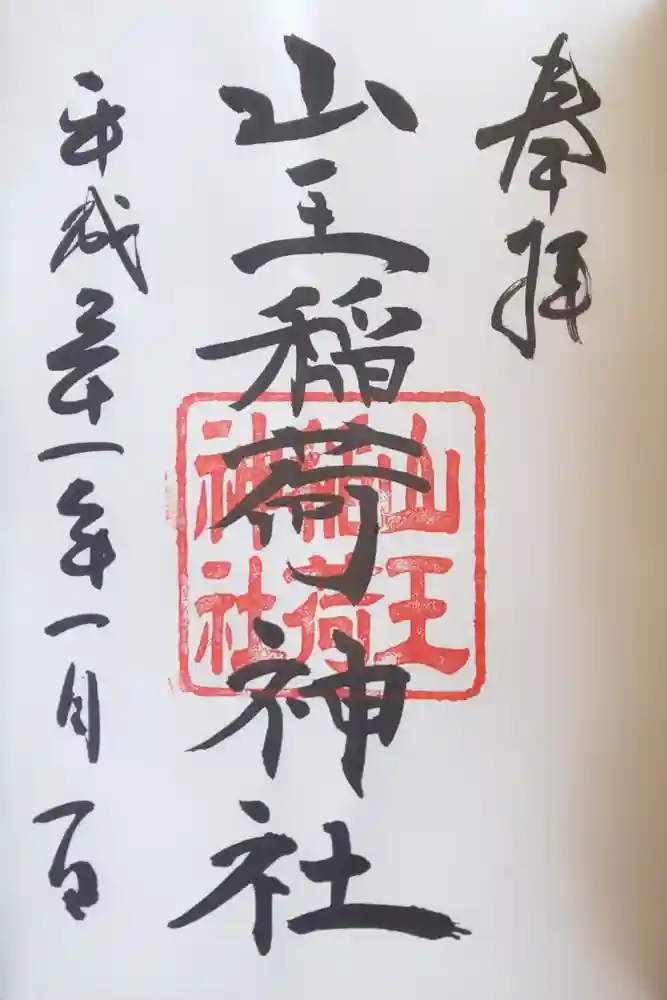 奉拝
山王稲荷神社
平成三十一年一月一日
山王
稲荷
神社